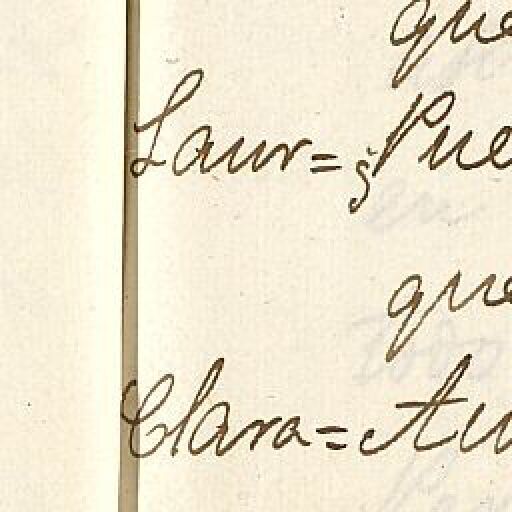 que
Laur= ¿Pue
que
Clara= Au